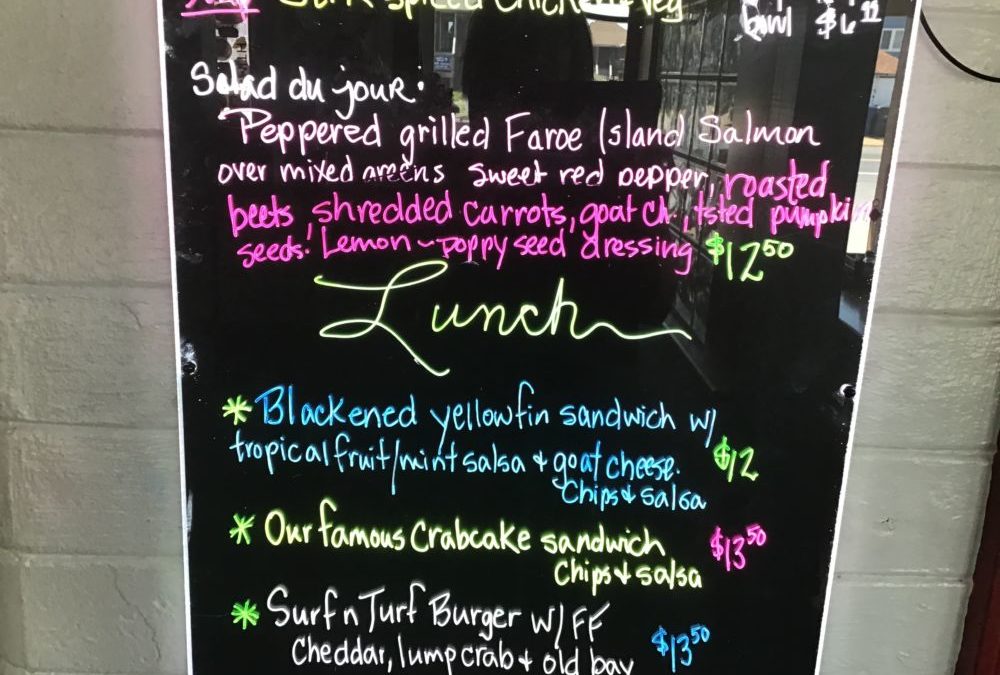 Jerk spiced chicken + veg
bowl $6
Salad du jour:
Peppered grilled Faroe Island Salmon
over mixed greens sweet red pepper, roasted
beets, shredded carrots, goat ch., tsted pumpkin
seeds. Lemon-poppy seed dressing $12 50
Lunch
* Blackened yellowfin sandwich w/
tropical fruit/mint salsa + goat cheese. $12
Chips + salsa
* Our famous Crabcake sandwich $13 50
Chips + salsa
* Surf n Turf Burger w/ FF
Cheddar, lump crab + old bay $13 50